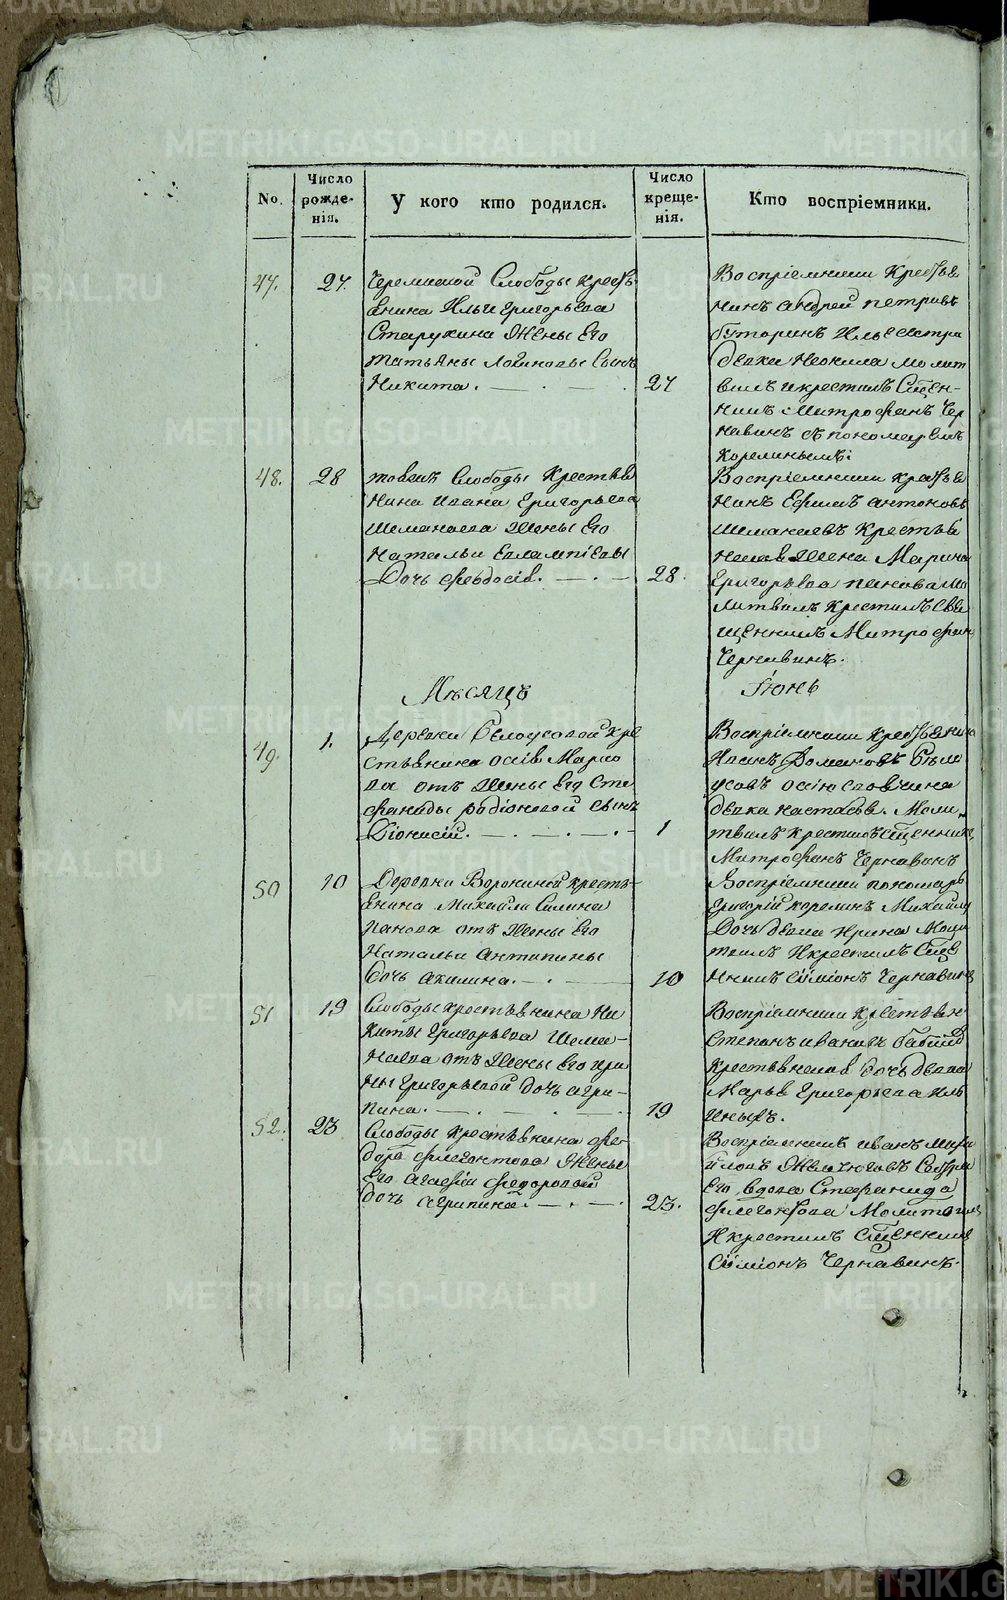 No.
Число рожде-нія.
У кого кто родился.
Число креще-нія.
Кто воспріемники.
47.
27.
Слободы Кресть
янина Ильи Григорьева
Старухина Жены Его
Татьяны Логиновы Сынъ
Никита.
27
Воспріемники Крестья
нинъ Андрей Петровъ
Буторинъ
девка молит
вилъ и крестилъ Сщен-
никъ Митрофанъ Чер
навинъ съ пономаремъ
Корелинымъ:
48.
28
Слободы Крестья
нина Ивана Григорьева
Шеманаева Жены Его
Натальи Евлампіевы
Дочь Феодосія.
28.
Воспріемники Крестья
нинъ Ефимъ Антоновъ
Шеманаевъ Крестья
Жена Марина
Григорьева Панова мо
литвилъ Крестилъ Свя
щенникъ Митрофанъ
Чернавинъ.
Мѣсяцъ
Іюнь
49.
1.
Деревни Белоусовой Кре
стьянина Осія Марко
ва отъ Жены Его Сте
фаниды Родіоновой сынъ
Діонисій.
1
Воспріемники Крестьянинъ
Иванъ Домановъ Бѣло
усовъ
девка Настасья. Моли
твилъ Крестилъ Сщенникъ
Митрофанъ Чернавинъ
50
10
Деревни Ворониной кресть-
янина Михайла Силина
Панова отъ Жены Его
Натальи Антипины
дочь Акилина.
10
Воспріемники пономарь
Григорій Корелинъ Михайлы
Дочь девка Ирина Моли
твилъ И крестилъ Сще
нникъ Сѷміонъ Чернавинъ
51
19
Слободы крестьянина Ни
киты Григорьева Шема-
наева отъ Жены Его Ири
ны Григорьевой дочь Агри-
пина.
19
Воспріемники Крестьян
Степанъ Ивановъ
дочь девка
Марья Григорьева Иль
иныхъ.
52.
23
Слободы Крестьянина Фе
дора Филегонтова Жены
Его Агафіи Федоровой
дочь Агрипина.
23.
Воспріемникъ Иванъ Миха
йловъ
Его вдова Стефанида
Филегонтова Молитвилъ
И крестилъ Сщенникъ
Сѷміонъ Чернавинъ.
METRIKI.GASO-URAL.RU